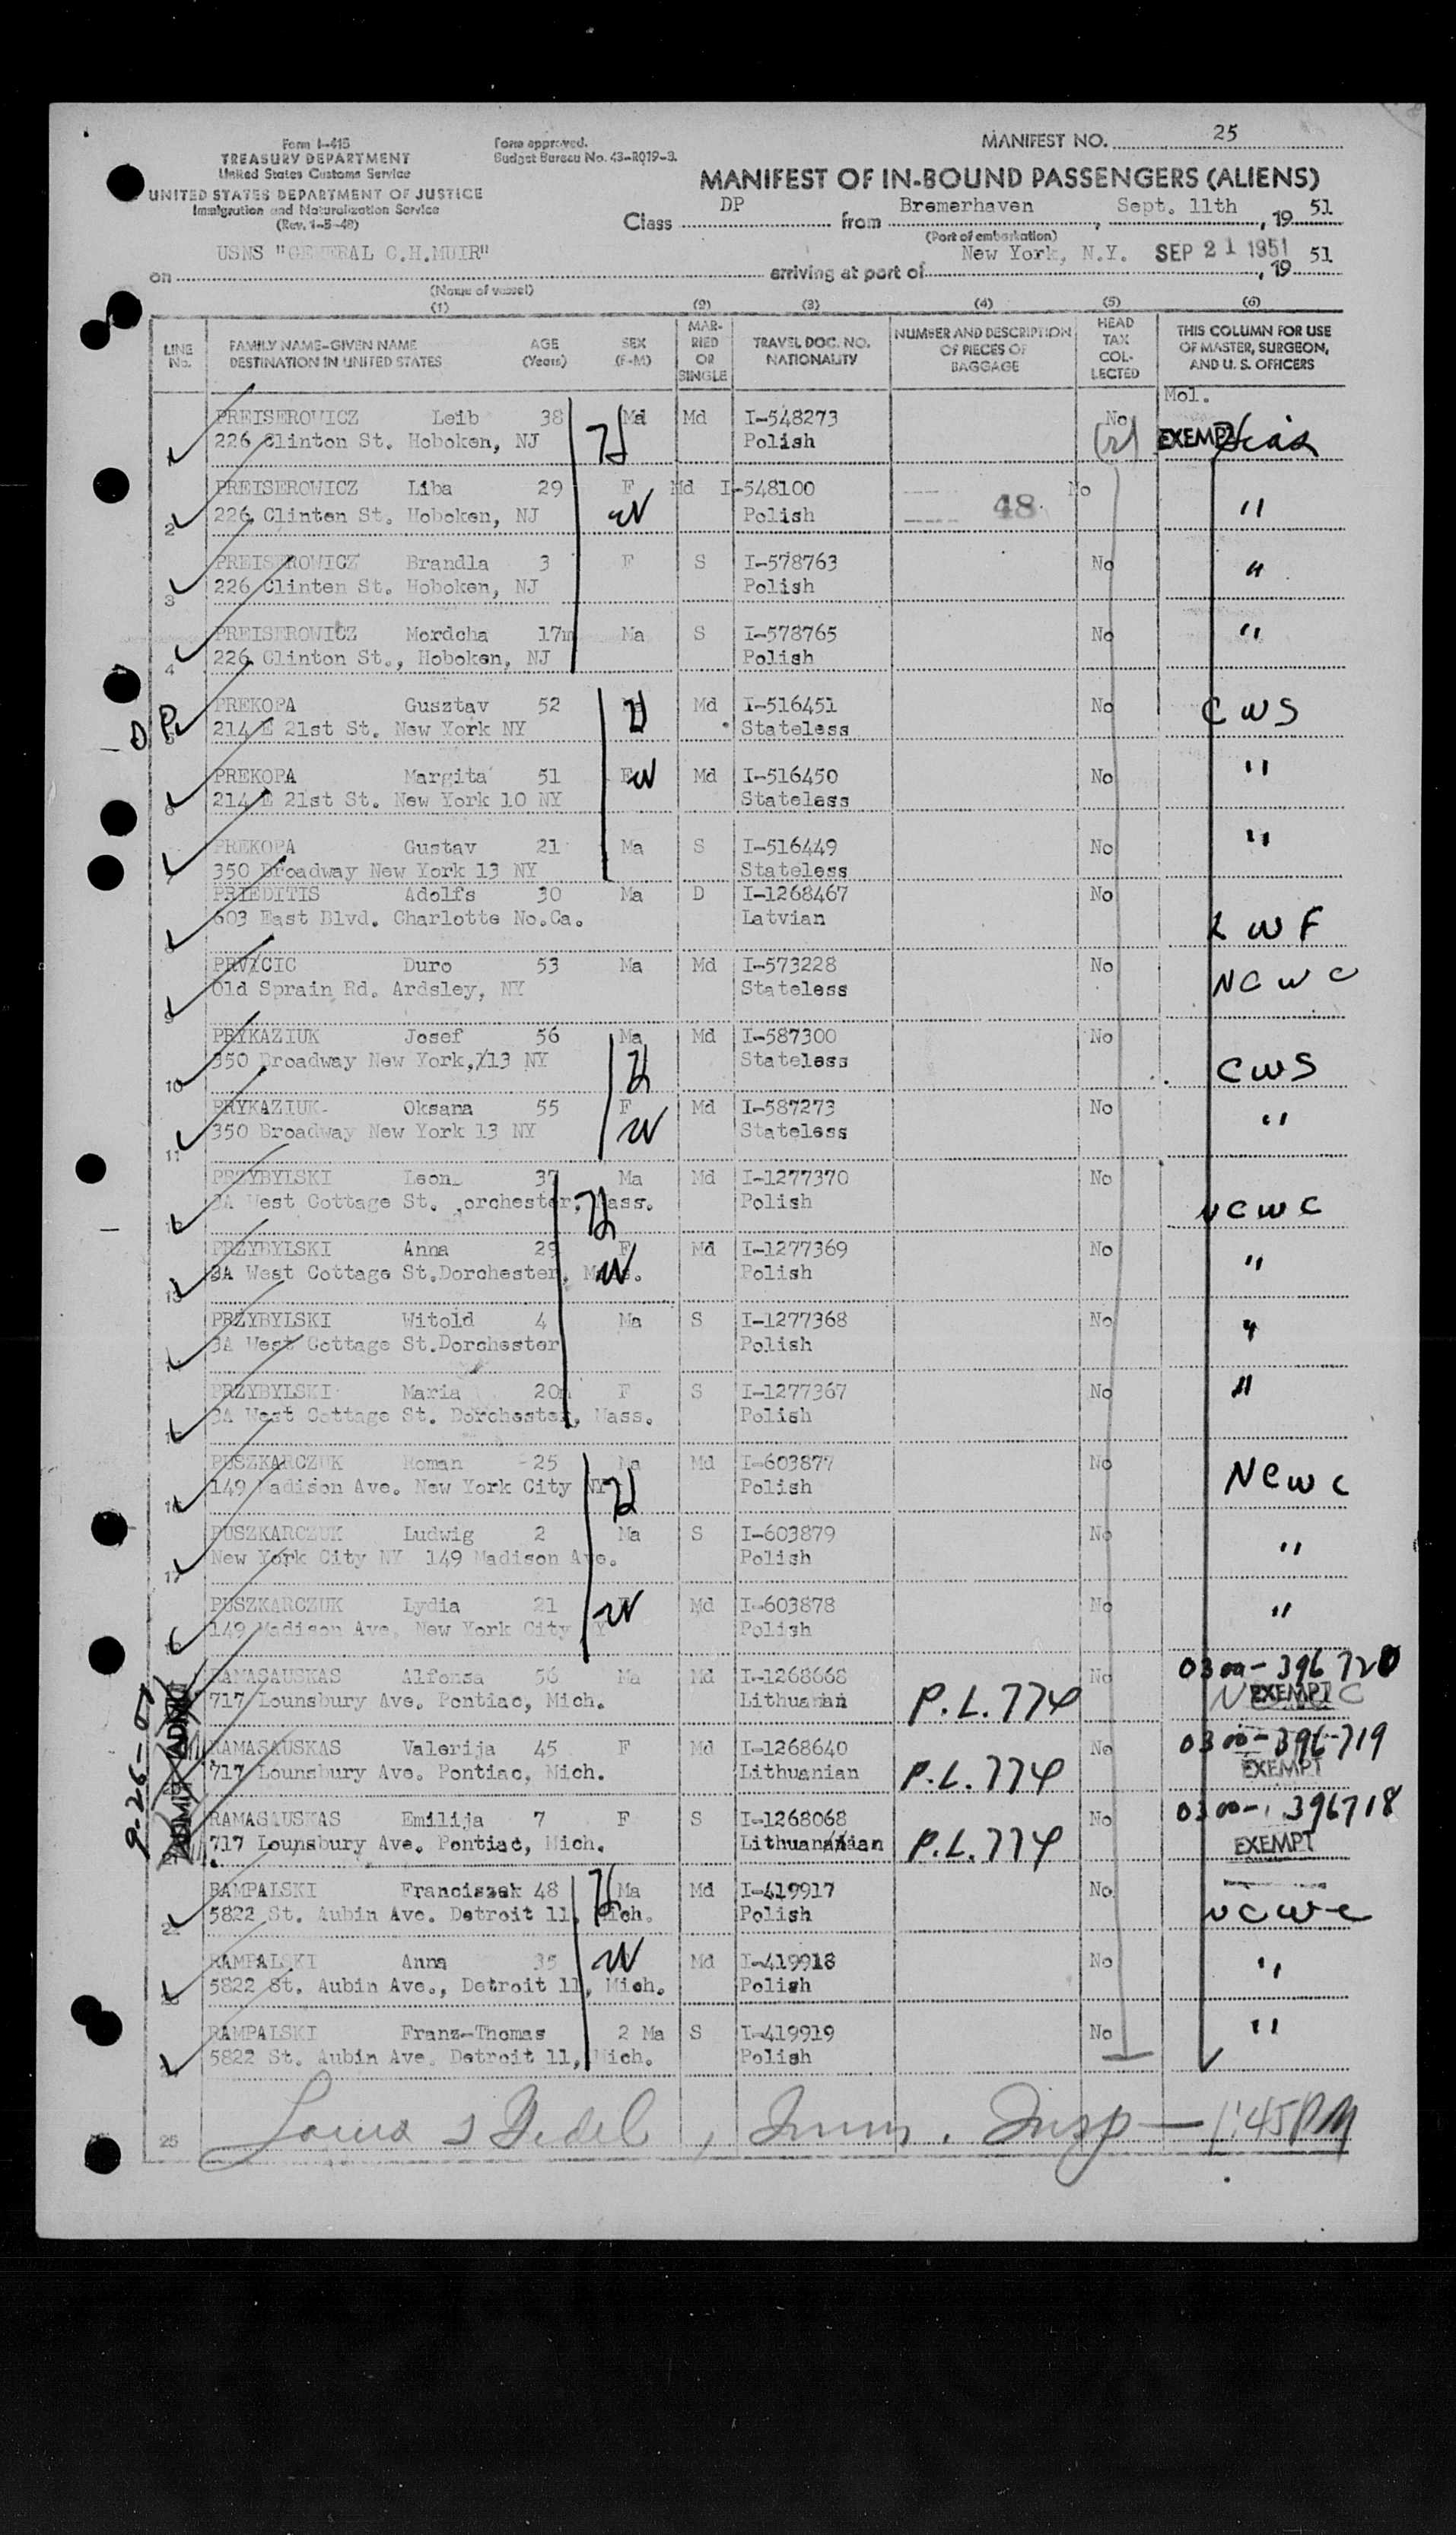 Form I-415
TREASURY DEPARTMENT
United States Customs Service
UNITED STATES DEPARTMENT OF JUSTICE
Immigration and Naturalization Service
(Rev. 1-5-49)
Form approved.
Budget Bureau No. 43-R019-3.
MANIFEST NO. 25
MANIFEST OF IN-BOUND PASSENGERS (ALIENS)
Class DP from Bremerhaven, Sept. 11th, 19 51
(Port of embarkation)
on USNS "GENERAL C.H.MUIR" arriving at port of New York, N.Y. SEP 21 1951, 19 51
(Name of vessel)
(1) (2) (3) (4) (5) (6)
LINE No. FAMILY NAME-GIVEN NAME DESTINATION IN UNITED STATES AGE (Years) SEX (F-M) MARRIED OR SINGLE TRAVEL DOC. NO. NATIONALITY NUMBER AND DESCRIPTION OF PIECES OF BAGGAGE HEAD TAX COLLECTED THIS COLUMN FOR USE OF MASTER, SURGEON, AND U. S. OFFICERS
Mol.
1 PREISEROWICZ Leib 38 Md Md I-548273 No
226 Clinton St. Hoboken, NJ H Polish (2) EXEMPT Hias
PREISEROWICZ Liba 29 F Md I-548100 No
2 226 Clinten St. Hoboken, NJ W Polish 48 "
PREISEROWICZ Brandla 3 F S I-578763 No "
3 226 Clinten St. Hoboken, NJ Polish
PREISEROWICZ Mordcha 17m Ma S I-578765 No "
4 226 Clinton St., Hoboken, NJ Polish
PREKOPA Gusztav 52 H Md I-516451 No CWS
5 214 E 21st St. New York NY Stateless
PREKOPA Margita 51 F W Md I-516450 No "
6 214 E 21st St. New York 10 NY Stateless
PREKOPA Gustav 21 Ma S I-516449 No "
7 350 Broadway New York 13 NY Stateless
PRIEDITIS Adolfs 30 Ma D I-1268467 No
8 603 East Blvd. Charlotte No.Ca. Latvian LWF
PRVICIC Duro 53 Ma Md I-573228 No NCWC
9 Old Sprain Rd. Ardsley, NY Stateless
PRYKAZIUK Josef 56 Ma Md I-587300 No
10 350 Broadway New York, 13 NY H Stateless CWS
PRYKAZIUK Oksana 55 F Md I-587273 No
11 350 Broadway New York 13 NY W Stateless "
PRZYBYLSKI Leon 37 Ma Md I-1277370 No
3A West Cottage St. ,orchester, Mass. H Polish NCWC
PRZYBYLSKI Anna 29 F Md I-1277369 No
13 3A West Cottage St.Dorchester, Mass. W Polish "
PRZYBYLSKI Witold 4 Ma S I-1277368 No "
3A West Cottage St.Dorchester Polish
PRZYBYLSKI Maria 20m F S I-1277367 No "
3A West Cottage St. Dorchester, Mass. Polish
PUSZKARCZUK Roman 25 Ma Md I-603877 No
149 Madison Ave. New York City NY H Polish NCWC
PUSZKARCZUK Ludwig 2 Ma S I-603879 No
17 New York City NY 149 Madison Ave. Polish "
PUSZKARCZUK Lydia 21 F W Md I-603878 No "
149 Madison Ave. New York City NY Polish
RAMASAUSKAS Alfonsa 56 Ma Md I-1268668 No 0300-396720
717 Lounsbury Ave. Pontiac, Mich. Lithuanian P.L.774 NCWC EXEMPT
RAMASAUSKAS Valerija 45 F Md I-1268640 No 0300-396719
717 Lounsbury Ave. Pontiac, Mich. Lithuanian P.L.774 EXEMPT
RAMASAUSKAS Emilija 7 F S I-1268068 No 0300-396718
717 Lounsbury Ave. Pontiac, Mich. Lithuananian P.L.774 EXEMPT
9-26-51
ADMITTED
RAMPALSKI Franciszek 48 H Ma Md I-419917 No
5822 St. Aubin Ave. Detroit 11, Mich. Polish NCWC
RAMPALSKI Anna 35 W Md I-419918 No "
5822 St. Aubin Ave., Detroit 11, Mich. Polish
RAMPALSKI Franz-Thomas 2 Ma S I-419919 No "
5822 St. Aubin Ave. Detroit 11, Mich. Polish
25 Imm. Insp - 1:45PM